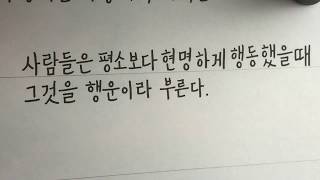 사람들은 평소보다 현명하게 행동했을때
그것을 행운이라 부른다.